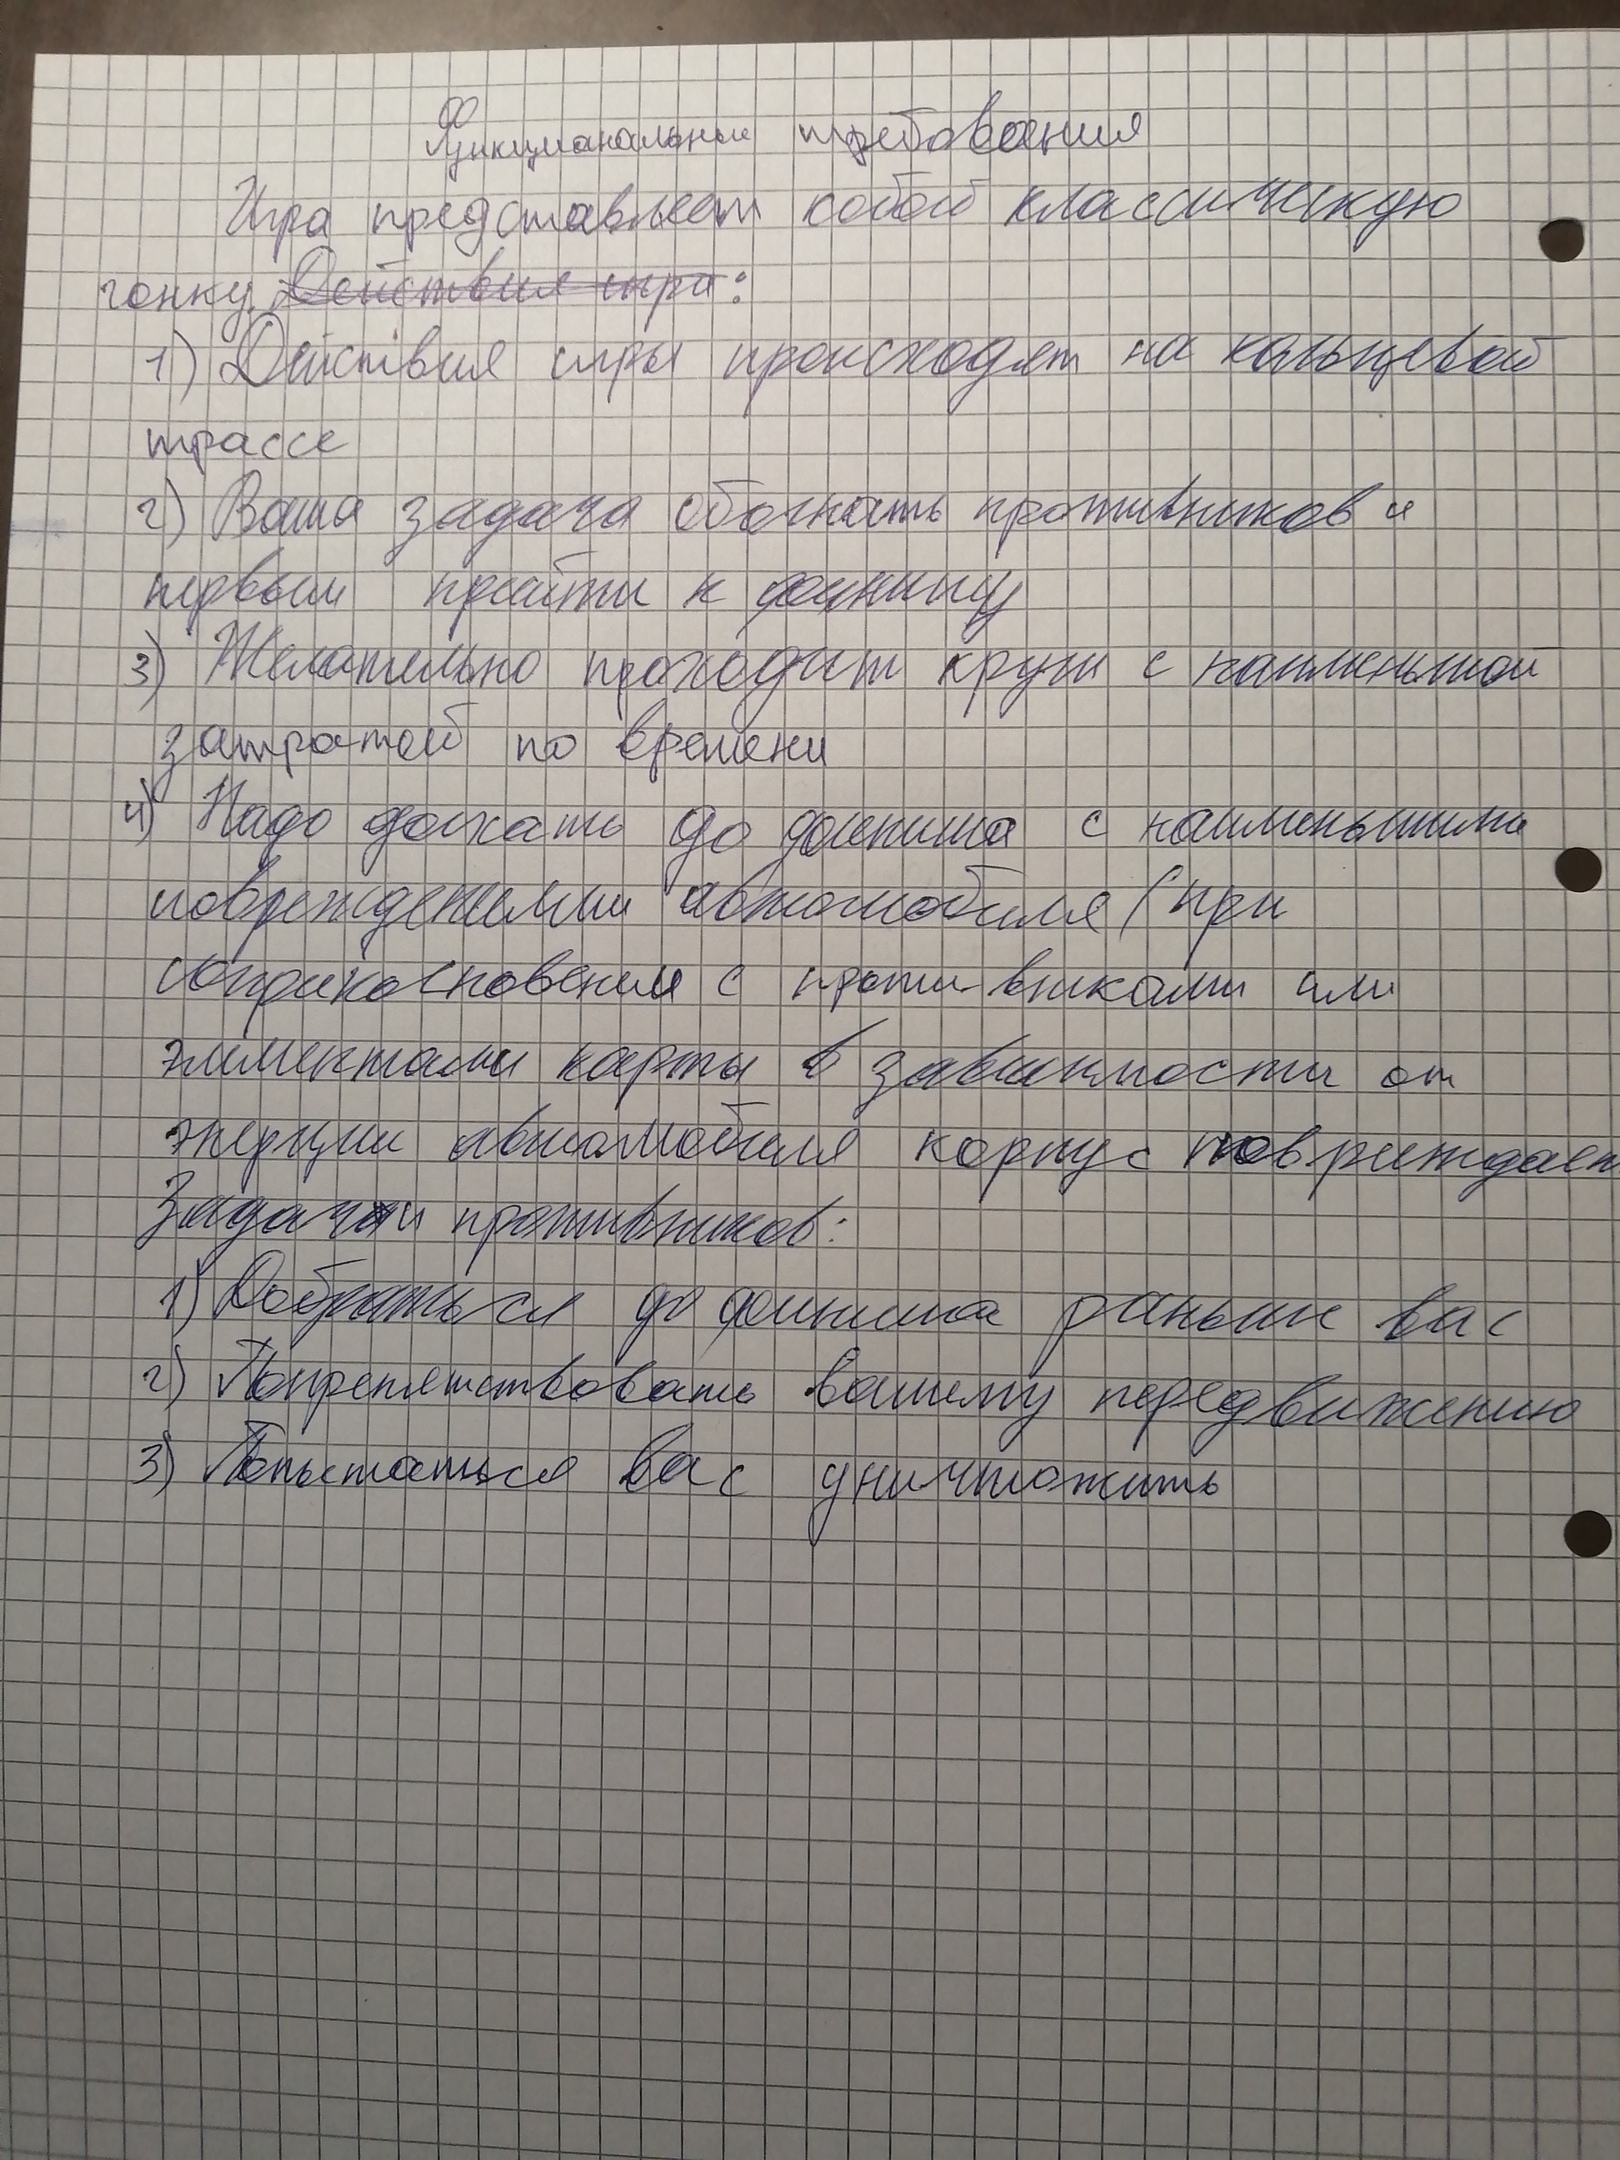 Функцианальные требования
Игра представляет собой классическую
гонку. Действия игры:
1) Действия игры происходят на кольцевой
трассе
2) Ваша задача обогнать противников и
первым прийти к финишу
3) Желательно проходит круги с наименьшей
затратой по времени
4) Надо доехать до финиша с наименьшими
повреждениями автомобиля (при
соприкосновении с противниками или
элементами карты в зависимости от
энергии автомобиля корпус повреждает
Задачи противников:
1) Добраться до финиша раньше вас
2) Попрепятствовать вашему передвижению
3) Попытаться вас уничтожить